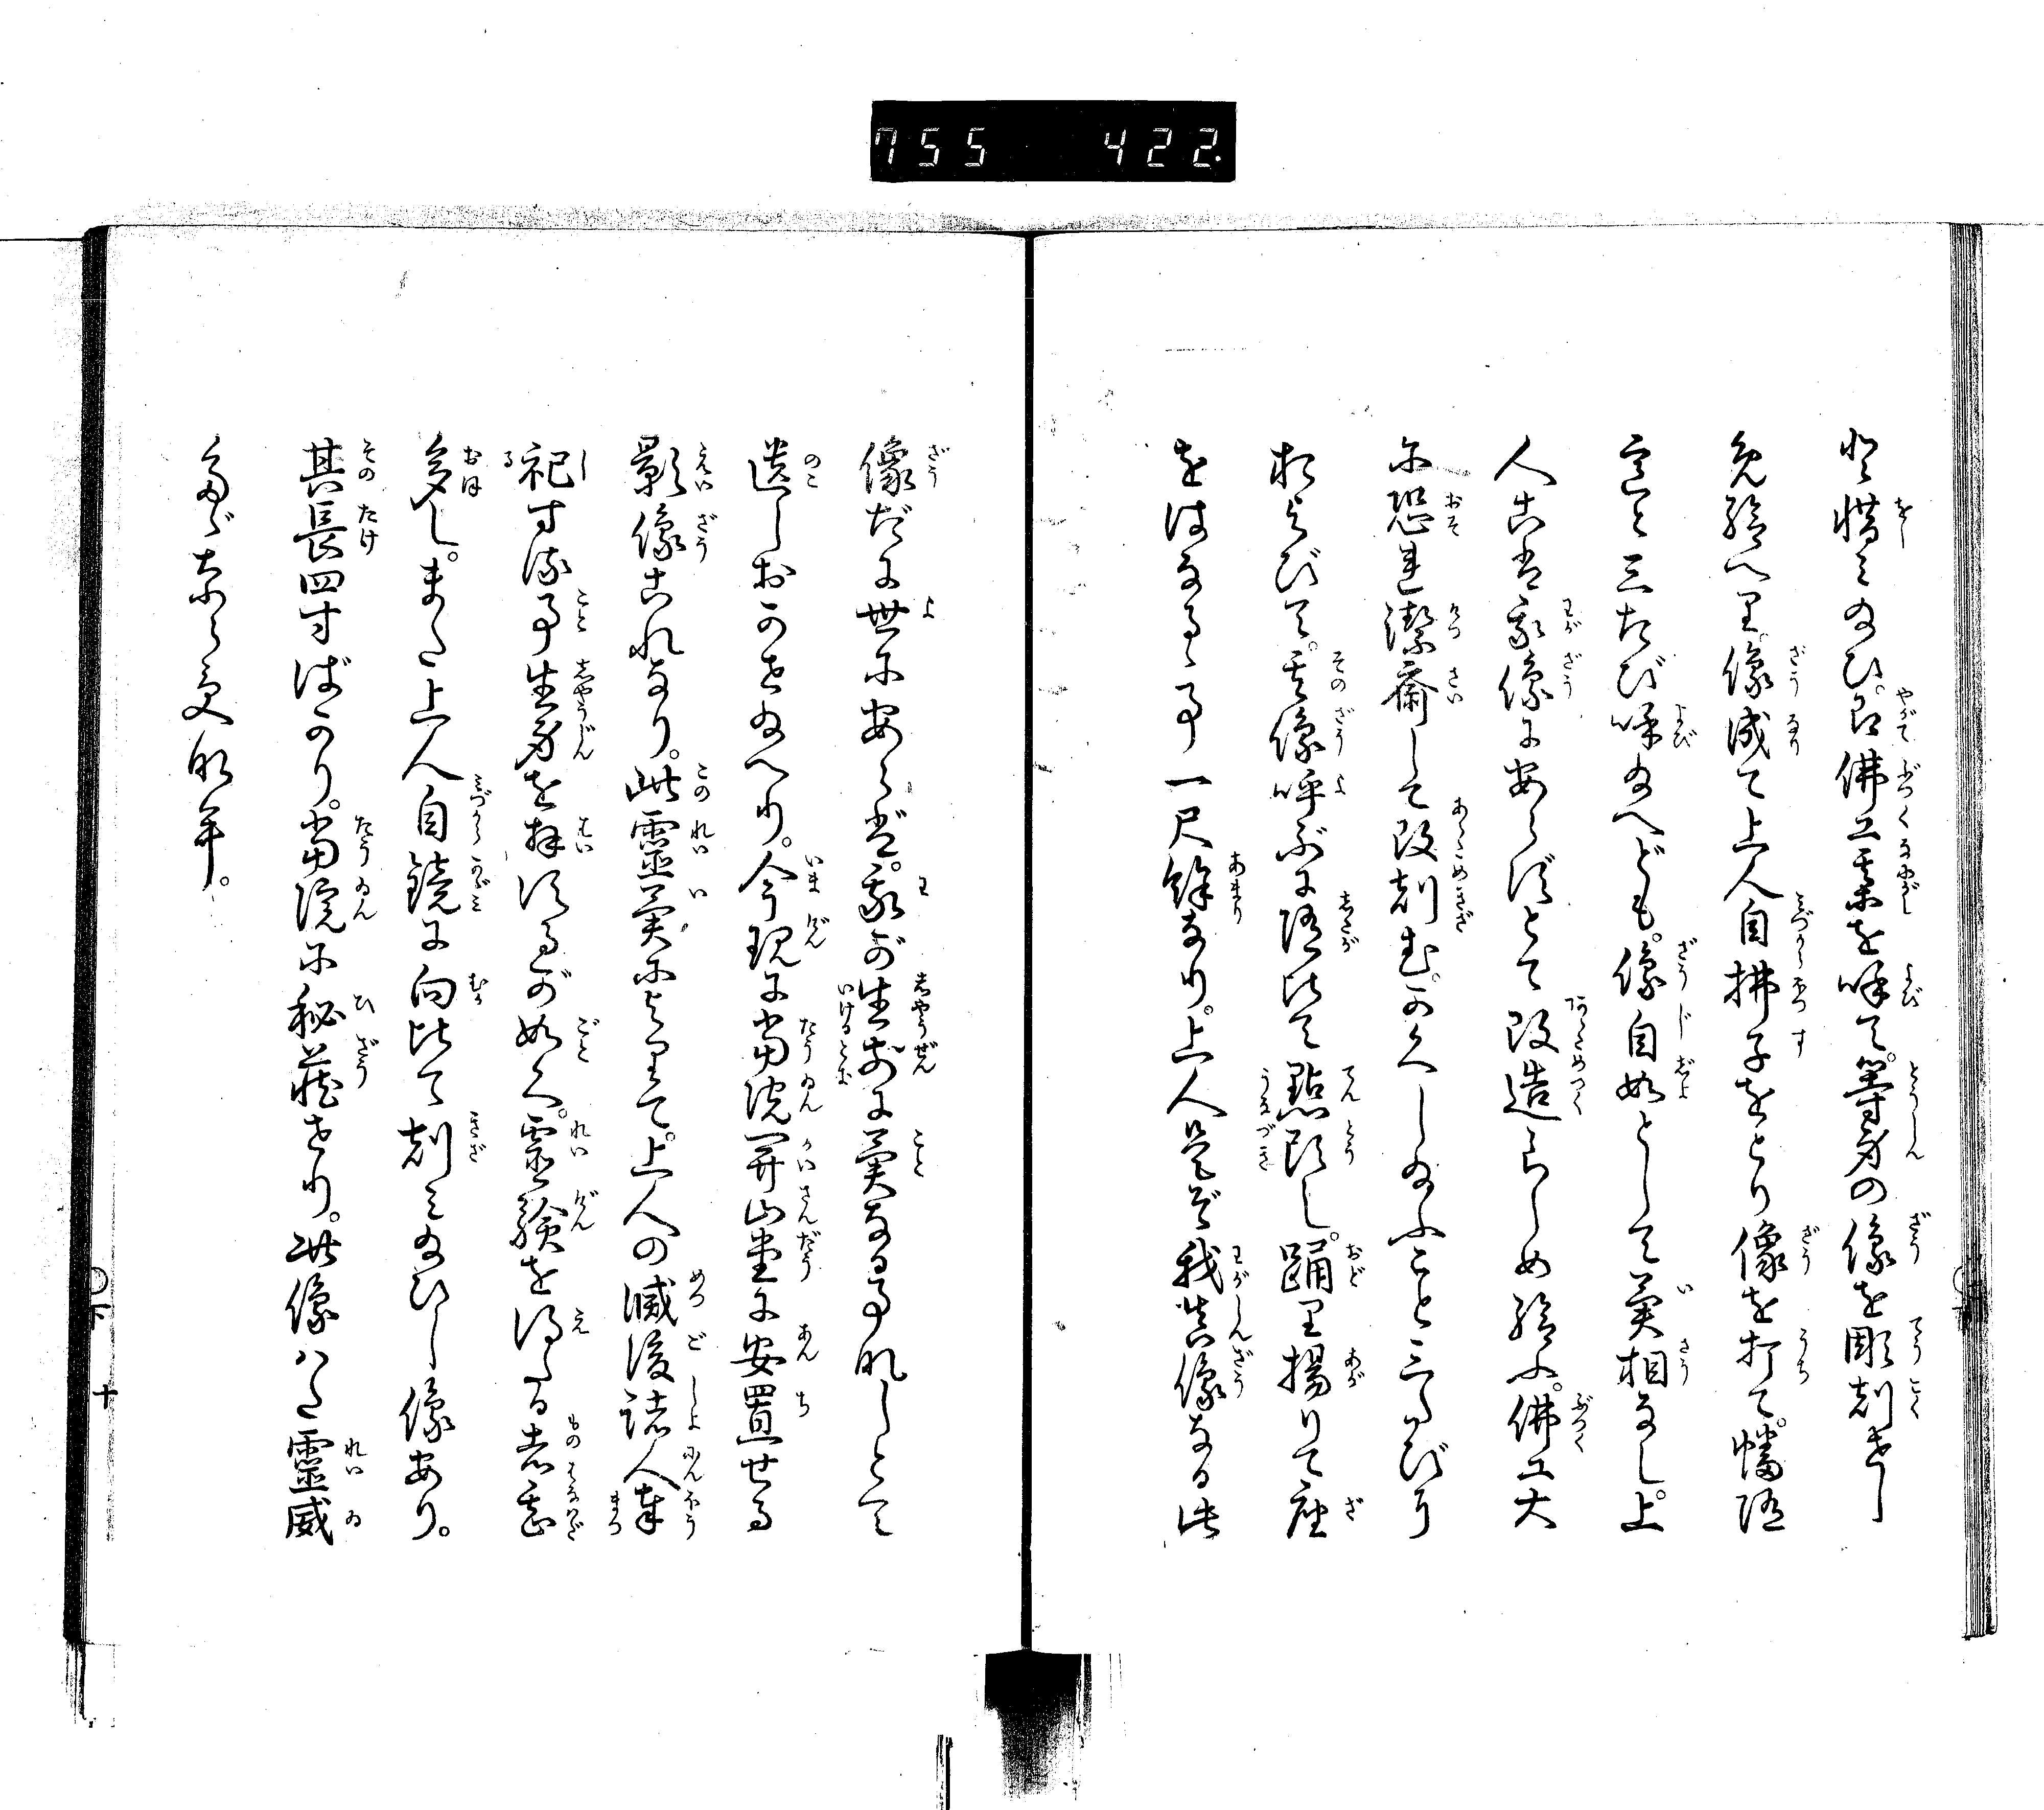 755 422.
と惜みたまひ。即佛工某を呼て。等身の像を彫刻せし
免給へり。像成て上人自拂子をとり像を打て。幡随
意と三たび呼たまへども。像自如として異相なし。上
人これ我像にあらずとて改造らしめ給ふ。佛工大
に恐れ潔齋して改刻む。かくしたまふこと三たびに
およびて。其像呼ぶに随ひて點頭し。踊り揚りて座
をはなるゝ事一尺餘なり。上人是ぞ我真像なる此
像だに世にあらば。我が生前に異なる事なしとて
遺しおかせたまへり。今現に當院開山堂に安置せる
影像これなり。此靈異によりて。上人の滅後諸人奉
祀する事生身を拝するが如く。霊験を得たる者甚
多し。また上人自鏡に向ひて刻みたまひし像あり。
其長四寸ばかり。當院に秘藏せり。此像はた靈威
たゞならざる
下 十